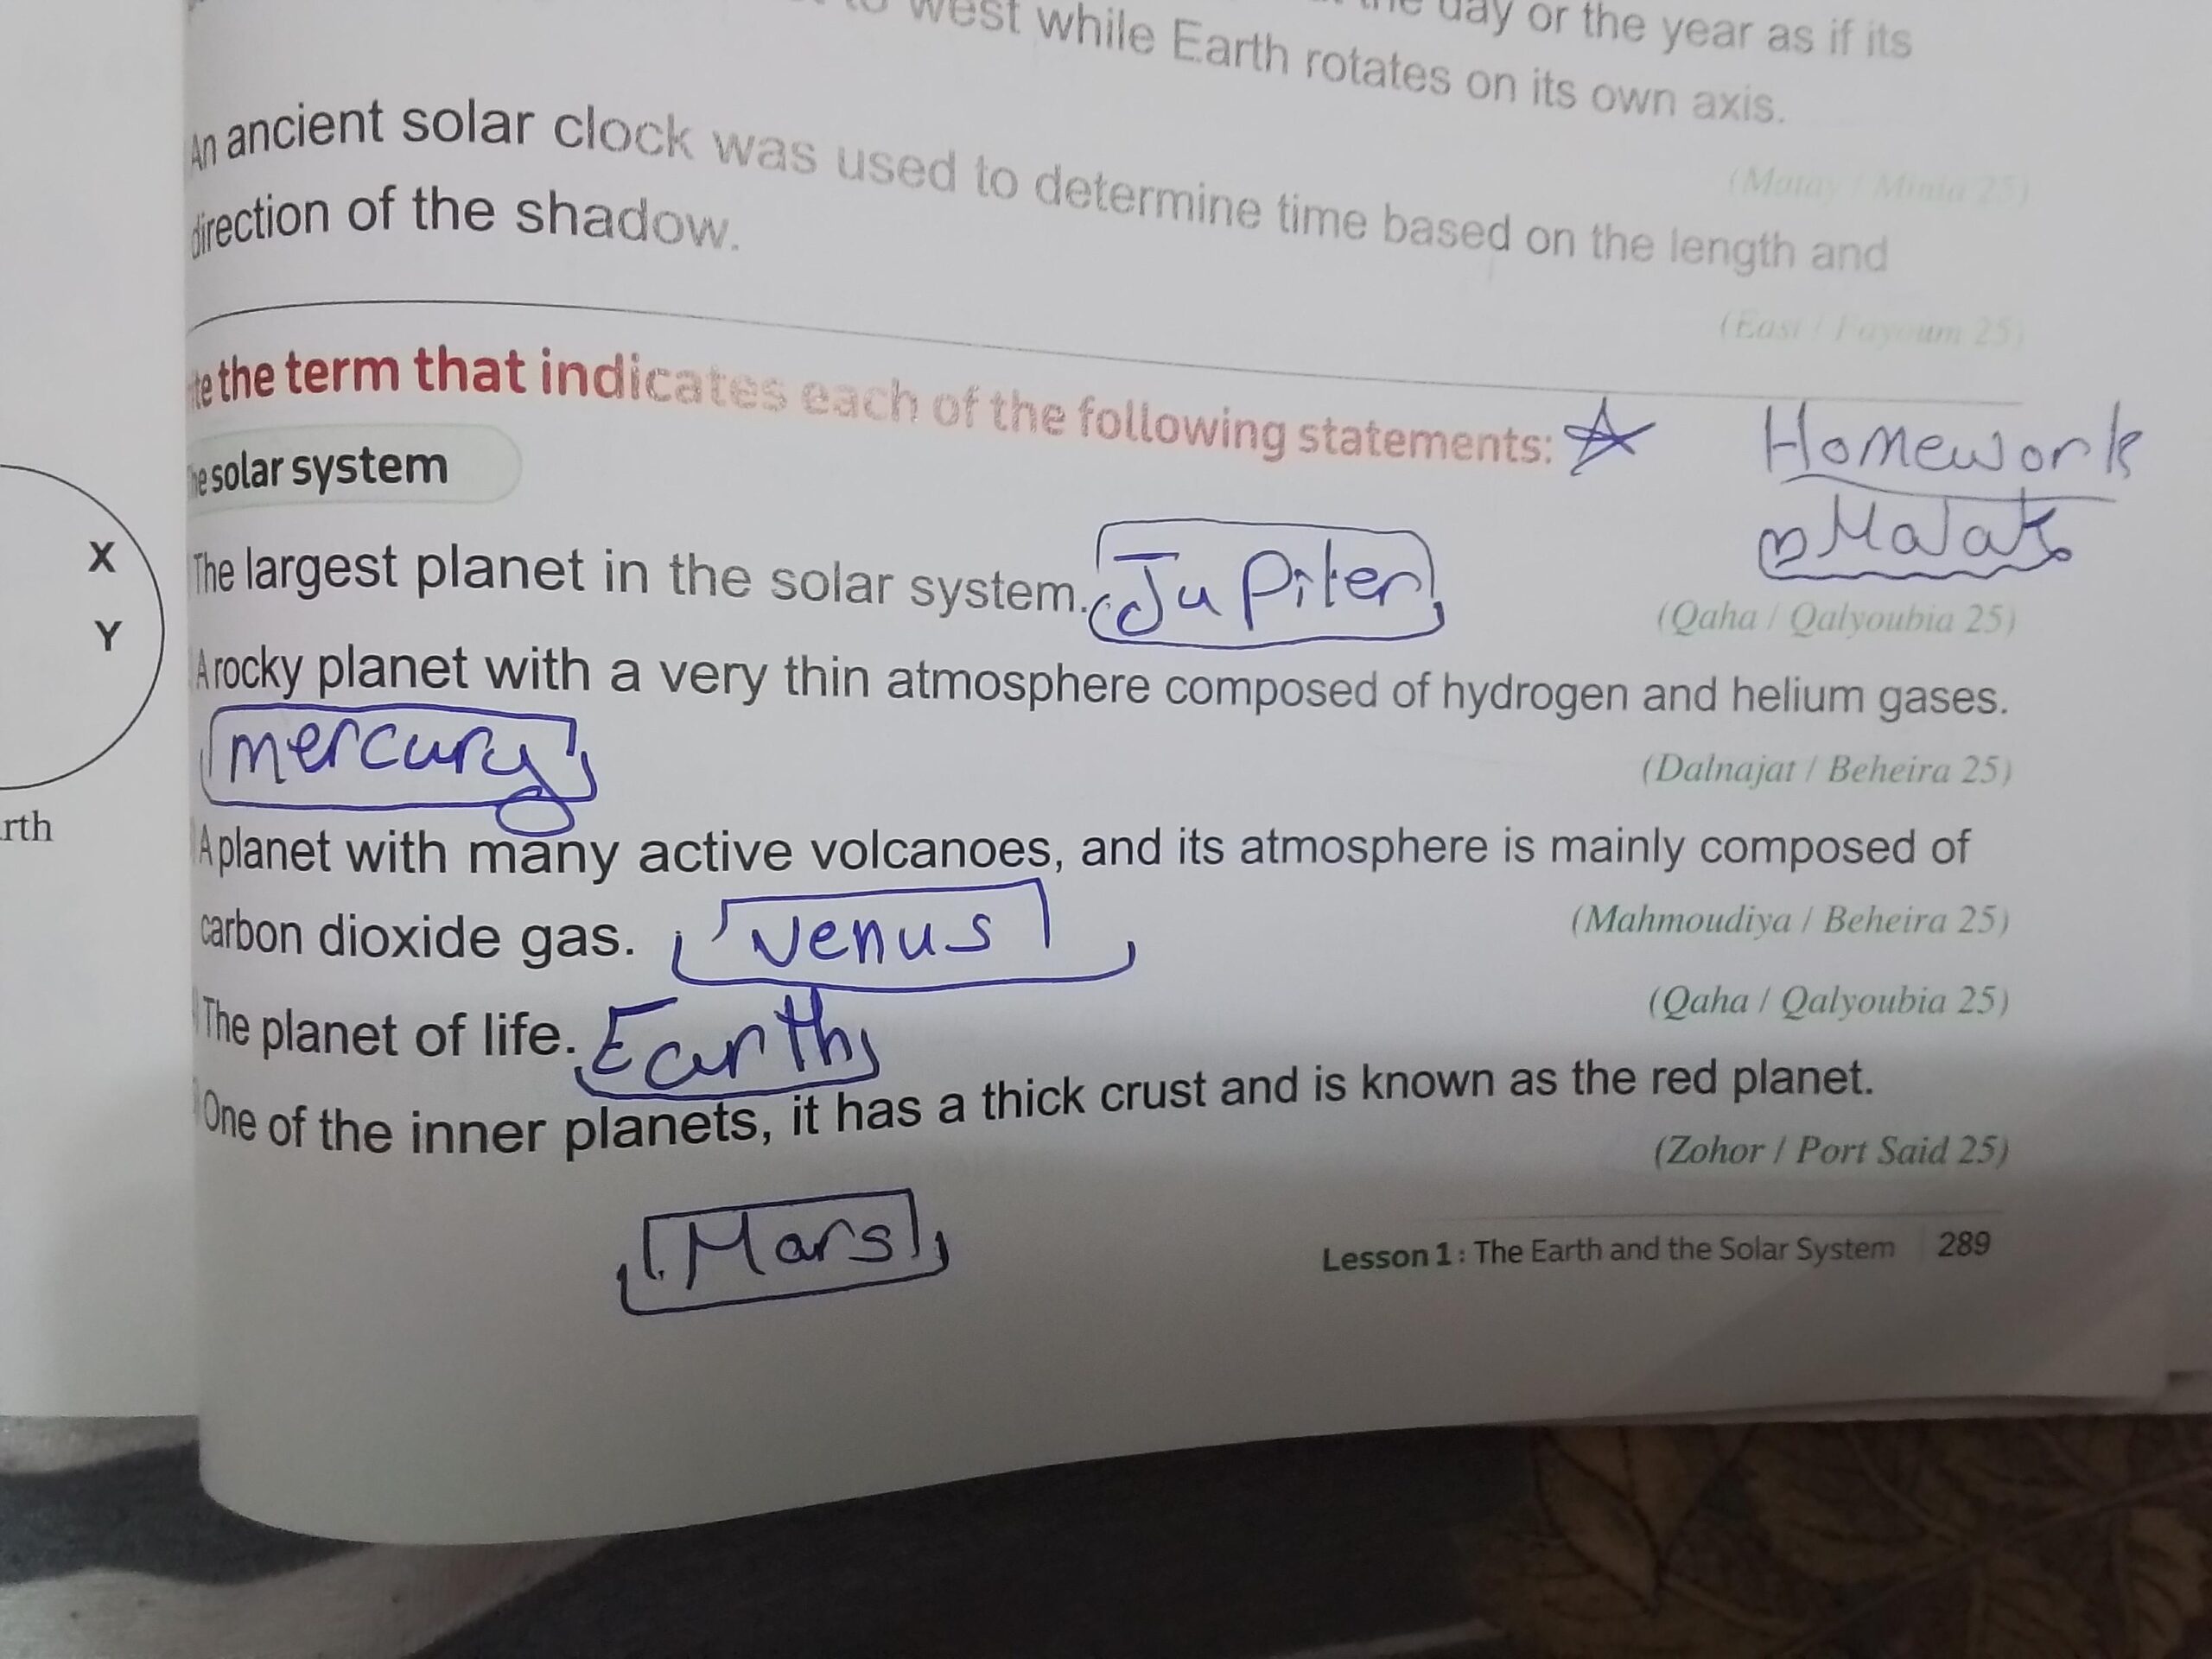 west while Earth rotates on its own axis.
day or the year as if its
An ancient solar clock was used to determine time based on the length and
direction of the shadow.
(Matay / Minia 25)
(East / Fayoum 25)
te the term that indicates each of the following statements:
Homework
Malak
he solar system
X
Y
rth
The largest planet in the solar system. Jupiter
(Qaha / Qalyoubia 25)
A rocky planet with a very thin atmosphere composed of hydrogen and helium gases.
mercury
(Dalnajat / Beheira 25)
A planet with many active volcanoes, and its atmosphere is mainly composed of
carbon dioxide gas. Venus
(Mahmoudiya / Beheira 25)
The planet of life. Earth
(Qaha / Qalyoubia 25)
One of the inner planets, it has a thick crust and is known as the red planet.
(Zohor / Port Said 25)
Mars
Lesson 1 : The Earth and the Solar System 289